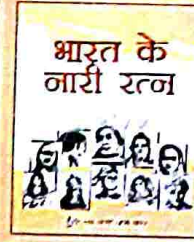 भारत के
नारी रत्न